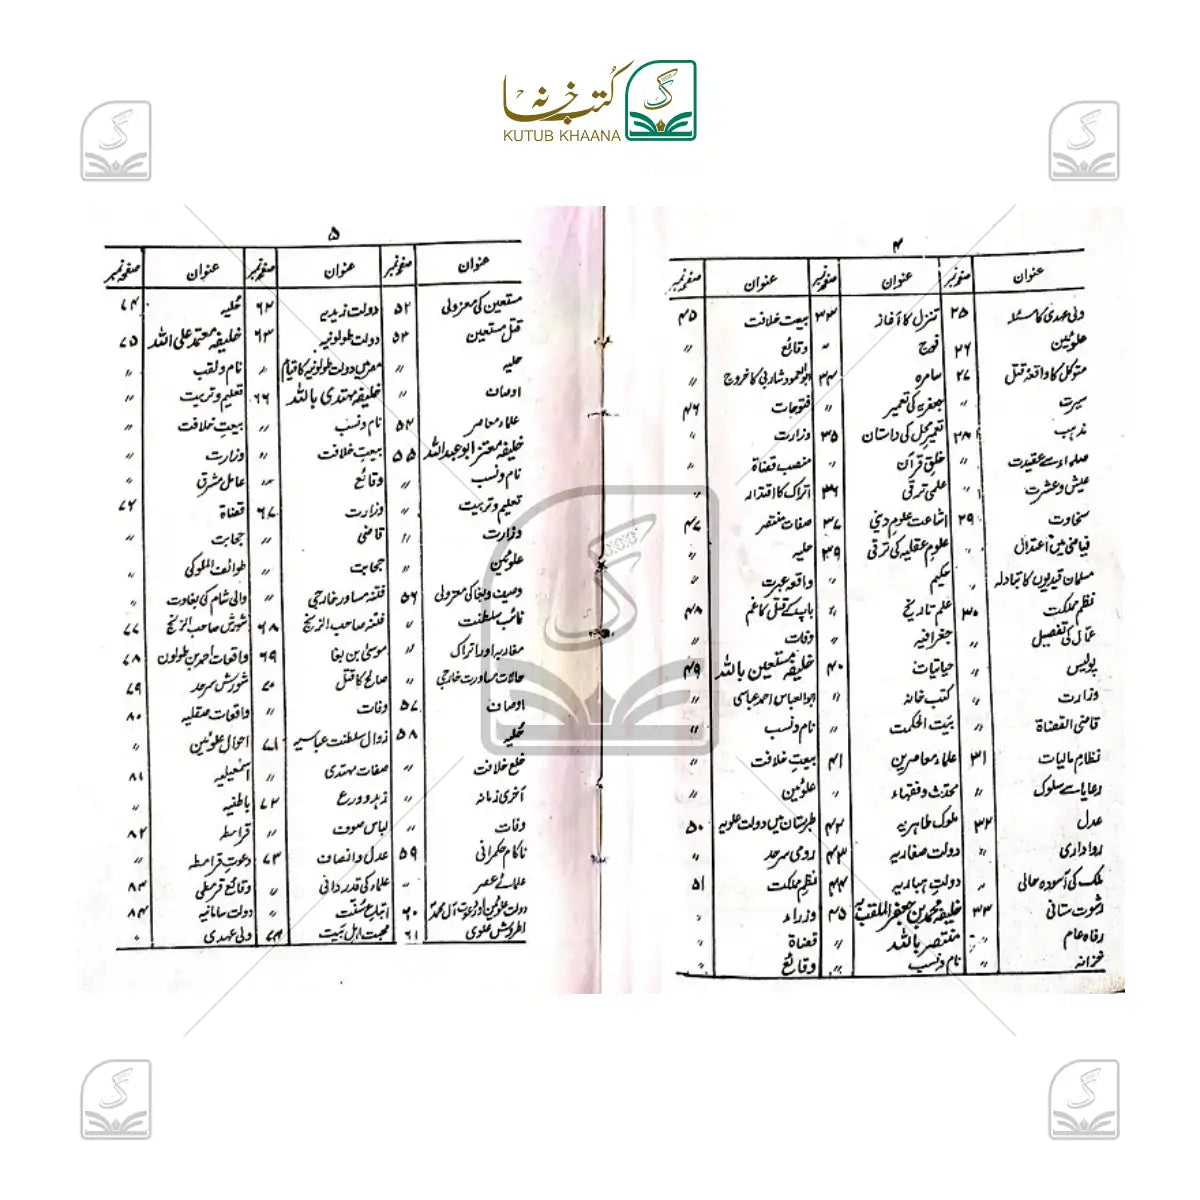 کتب خانہ
KUTUB KHAANA
۴
عنوان صفحہ نمبر عنوان صفحہ نمبر عنوان صفحہ نمبر
ولی عہدی کا مسئلہ ۲۵ تنزل کا آغاز ۳۳ بیعت خلافت ۴۵
علوئین ۲۶ فوج " وقائع "
متوکل کا واقعۂ قتل ۲۷ سامرہ ۳۴ ابوالعمود شاربی کا خروج "
سیرت " جعفریہ کی تعمیر " فتوحات ۴۶
مذہب ۲۸ تعمیر محل کی داستان ۳۵ وزارت "
صلحاء سے عقیدت " خلق قرآن " منصب قضاۃ "
عیش و عشرت " علمی ترقی ۳۶ اتراک کا اقتدار "
سخاوت ۲۹ اشاعت علوم دینی ۳۷ صفات منتصر ۴۷
فیاضی میں اعتدال " علوم عقلیہ کی ترقی ۳۹ حلیہ "
مسلمان قیدیوں کا تبادلہ حکیم " واقعہ عبرت "
نظم مملکت ۳۰ علم تاریخ " باپ کے قتل کا غم ۴۸
عمال کی تفصیل " جغرافیہ " وفات "
پولیس " حیاتیات ۴۰ خلیفہ مستعین باللہ ۴۹
وزارت " کتب خانہ " ابوالعباس احمد عباسی "
قاضی القضاۃ " بیت الحکمت " نام و نسب "
نظام مالیات ۳۱ علماء معاصرین ۴۱ بیعت خلافت "
رعایا سے سلوک " محدث و فقہاء " علوئین "
عدل ۳۲ ملوک طاہریہ ۴۲ طبرستان میں دولت علویہ ۵۰
رواداری " دولت صفاریہ ۴۳ رومی سرحد "
ملک کی آسودہ حالی " دولت ہباریہ ۴۴ نظم مملکت ۵۱
رشوت ستانی ۳۳ خلیفہ محمد بن جعفر الملقب بہ ۴۵ وزراء "
رفاہ عام " منتصر باللہ " قضاۃ "
خزانہ " نام و نسب " وقائع "
۵
عنوان صفحہ نمبر عنوان صفحہ نمبر عنوان صفحہ نمبر
مستعین کی معزولی ۵۲ دولت زیدیہ ۶۲ حلیہ ۷۴
قتل مستعین ۵۳ دولت طولونیہ ۶۳ خلیفہ معتمد علی اللہ ۷۵
حلیہ " مصر میں دولت طولونیہ کا قیام " نام و لقب "
اوصاف " خلیفہ مہتدی باللہ ۶۶ تعلیم و تربیت "
علماء معاصر ۵۴ نام و نسب " بیعت خلافت "
خلیفہ معتز ابو عبداللہ ۵۵ بیعت خلافت " وزارت "
نام و نسب " وقائع " عامل مشرق "
تعلیم و تربیت " وزارت ۶۷ قضاۃ ۷۶
وزارت " قاضی " حجابت "
علوئین " حجابت " طوائف الملوکی "
وصیف و بغا کی معزولی ۵۶ فتنہ مساور خارجی " والی شام کی بغاوت "
نائب سلطنت " فتنہ صاحب الزنج ۶۸ شورش صاحب الزنج ۷۷
مغاربہ اور اتراک " موسیٰ بن بغا ۶۹ واقعات احمد بن طولون ۷۸
حالات مساورت خارجی " صالح کا قتل ۷۰ شورش سرحد ۷۹
اوصاف ۵۷ وفات " واقعات صقلیہ ۸۰
حلیہ ۵۸ زوال سلطنت عباسیہ ۷۱ احوال علوئین "
خلع خلافت " صفات مہتدی " اسمٰعیلیہ ۸۱
آخری زمانہ " زہد و ورع ۷۲ باطنیہ "
وفات " لباس صوف " قرامطہ ۸۲
ناکام حکمرانی ۵۹ عدل و انصاف ۷۳ دعوت قرامطہ "
علمائے عصر " علماء کی قدردانی " وقائع قرمطی ۸۳
دولت علوئین اور دعوت آل محمدؐ ۶۰ اتباع سنت " دولت سامانیہ ۸۴
اطروش علوی ۶۱ محبت اہل بیت ۷۴ ولی عہدی "